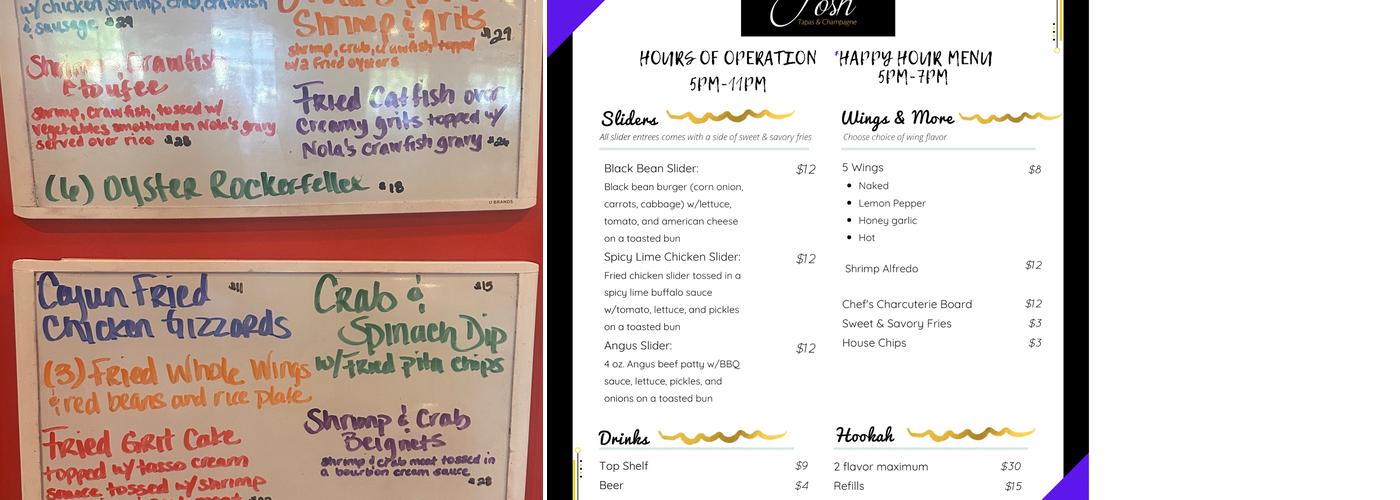 w/ chicken, shrimp, crab, crawfish
& sausage $29
Shrimp & grits
$29
shrimp, crab, crawfish topped
w/ 2 Fried oysters
Shrimp, Crawfish
Etoufee
shrimp, crawfish, tossed w/
vegetables smothered in Nola's gravy
served over rice $28
Fried Catfish over
creamy grits topped w/
Nola's crawfish gravy $26
(6) Oyster Rockerfeller $18
U BRANDS
Cajun Fried $11
Chicken Gizzards
(3) Fried Whole Wings
& red beans and rice plate
Fried Grit Cake
topped w/ tasso cream
sauce tossed w/ shrimp
Crab & $15
Spinach Dip
w/ Fried pita chips
Shrimp & Crab
Beignets
shrimp & crab meat tossed in
a bourbon cream sauce
$28
Posh
Tapas & Champagne
HOURS OF OPERATION
5PM-11PM
'HAPPY HOUR MENU
5PM-7PM
Sliders
All slider entrees comes with a side of sweet & savory fries
Black Bean Slider: $12
Black bean burger (corn onion,
carrots, cabbage) w/lettuce,
tomato, and american cheese
on a toasted bun
Spicy Lime Chicken Slider: $12
Fried chicken slider tossed in a
spicy lime buffalo sauce
w/tomato, lettuce, and pickles
on a toasted bun
Angus Slider: $12
4 oz. Angus beef patty w/BBQ
sauce, lettuce, pickles, and
onions on a toasted bun
Wings & More
Choose choice of wing flavor
5 Wings $8
Naked
Lemon Pepper
Honey garlic
Hot
Shrimp Alfredo $12
Chef's Charcuterie Board $12
Sweet & Savory Fries $3
House Chips $3
Drinks
Top Shelf $9
Beer $4
Hookah
2 flavor maximum $30
Refills $15